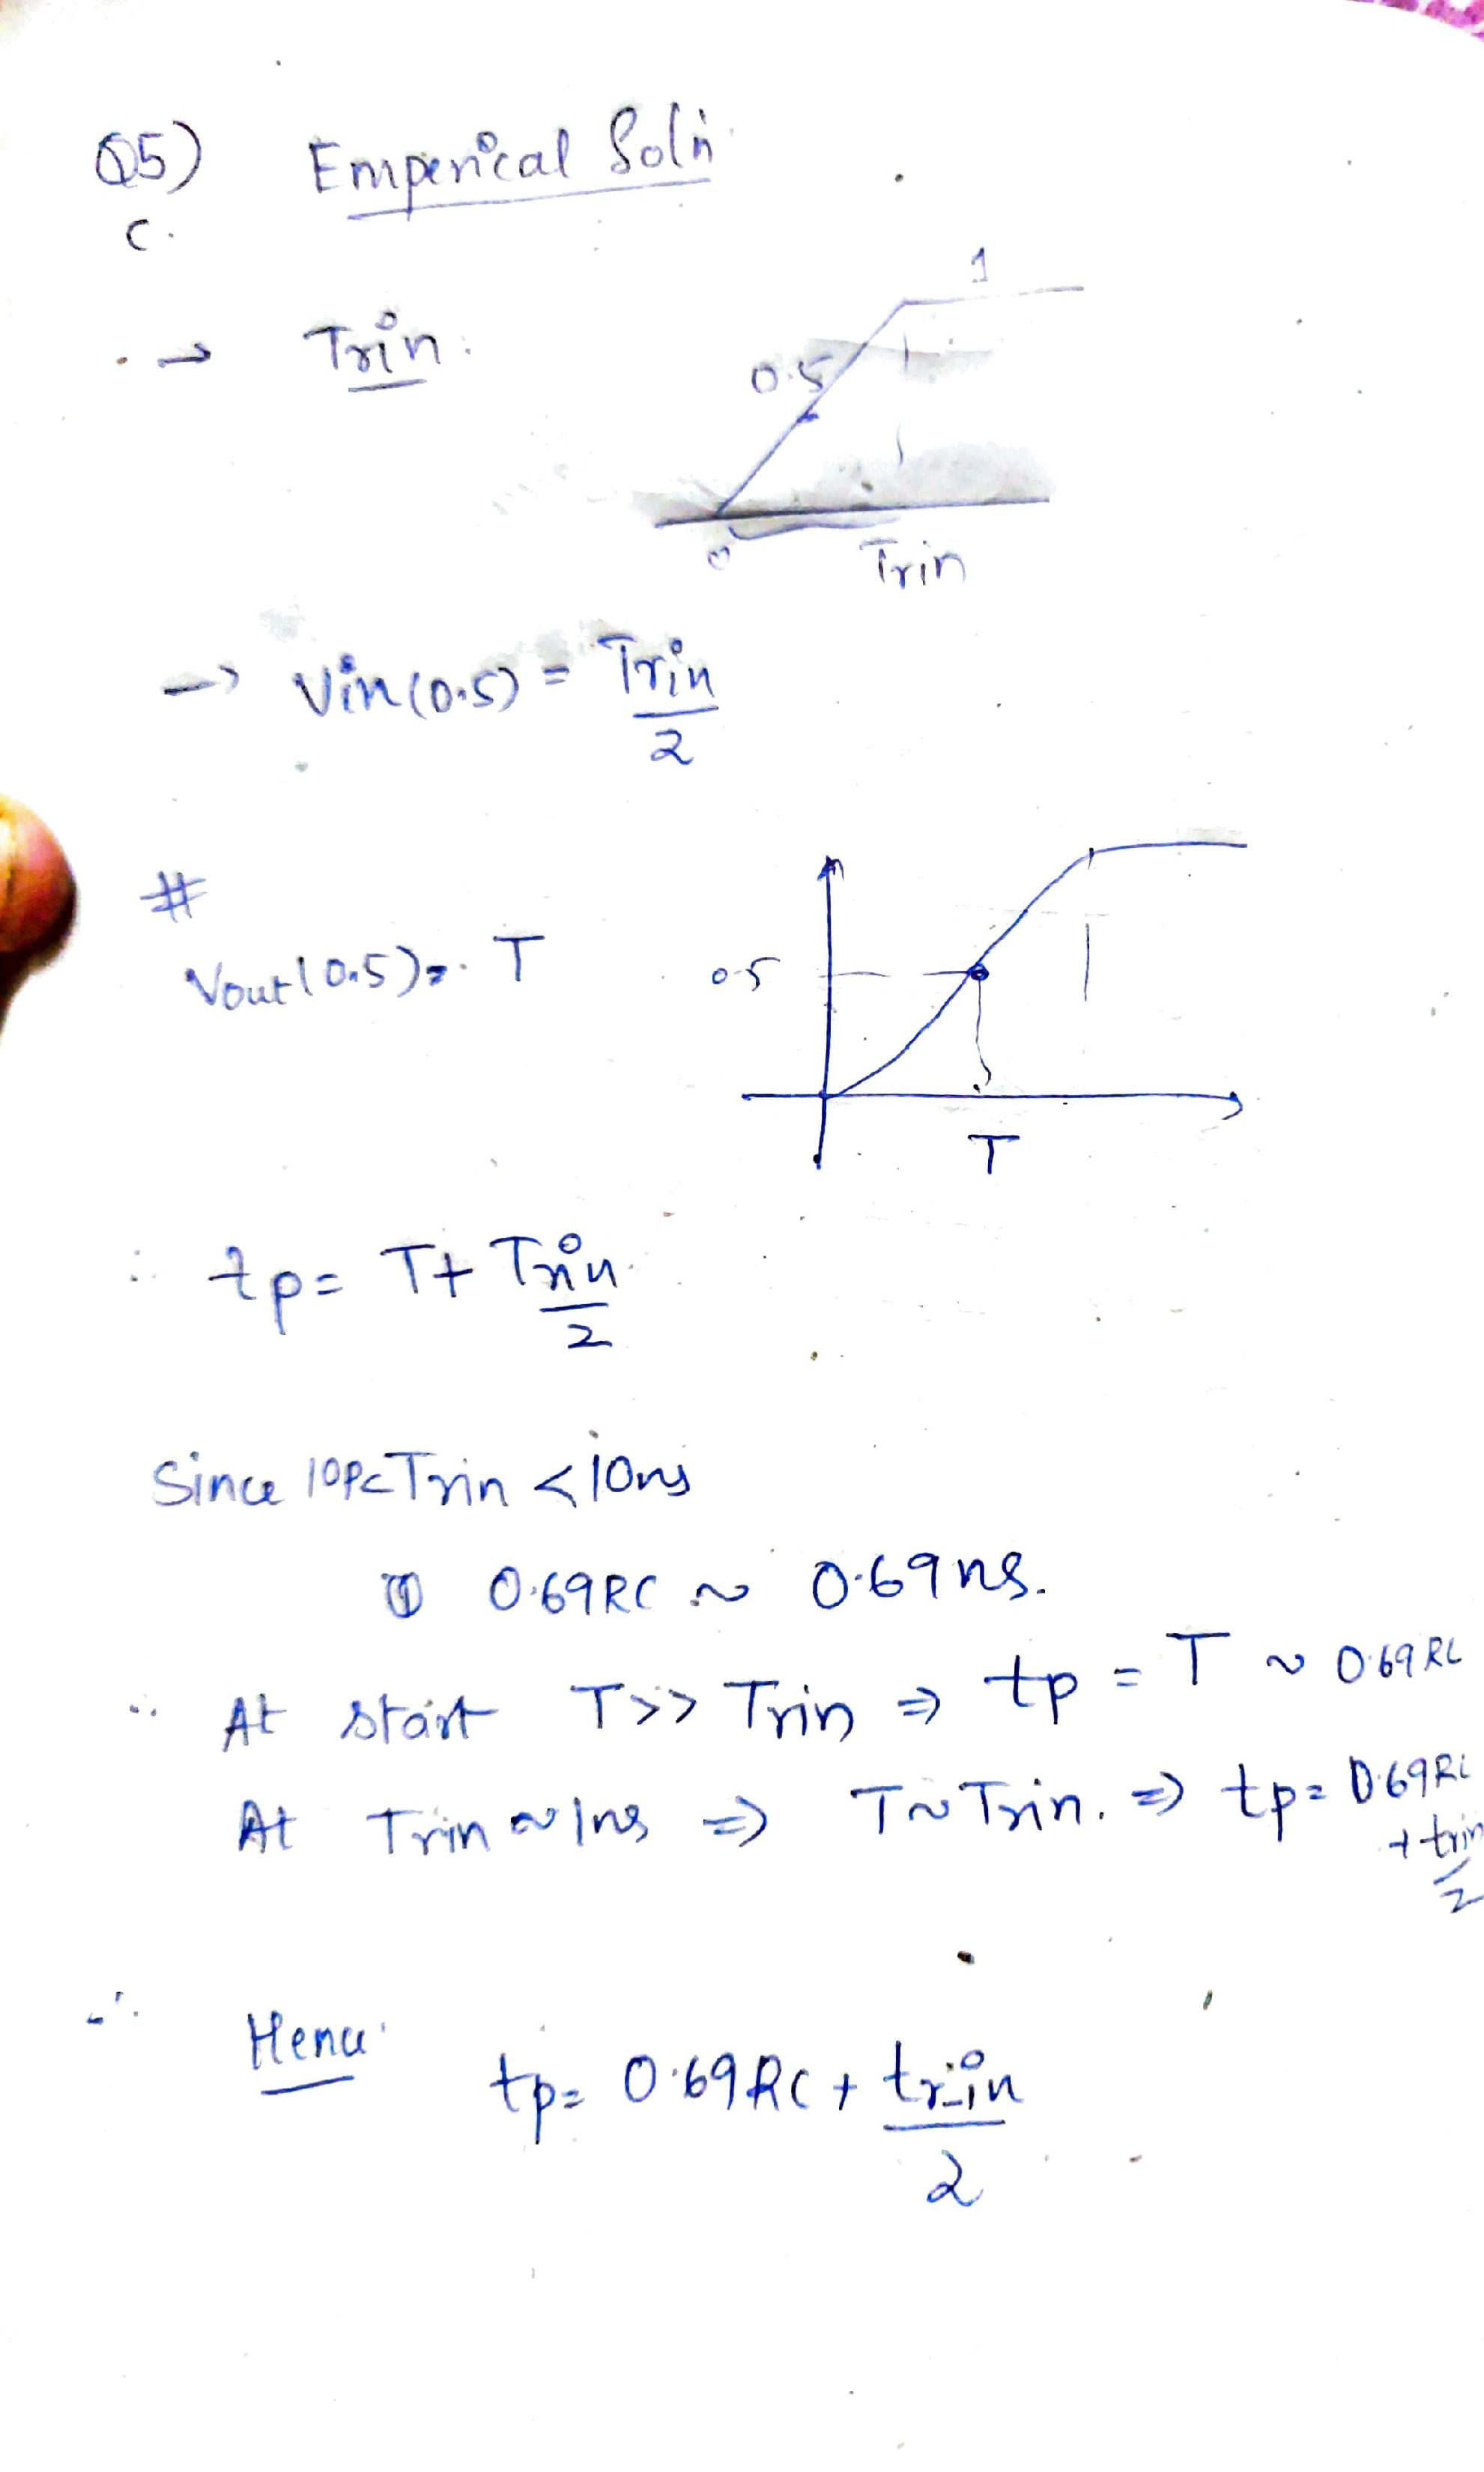 Q5) Emperical Soln.
C.
1
→ Trin:
0.5
0 Trin
→ Vin(0.5) = Trin/2
#
Vout(0.5) = T
0.5
T
∴ tp = T + Trin/2
Since Trin < 10ns
0.69RC ~ 0.69ns.
∴ At start T>> Trin ⇒ tp = T ~ 0.69RC
At Trin ~ 1ns ⇒ T ~ Trin. ⇒ tp = 0.69RC
+ trin/2
∴ Hence
tp = 0.69RC + trin/2